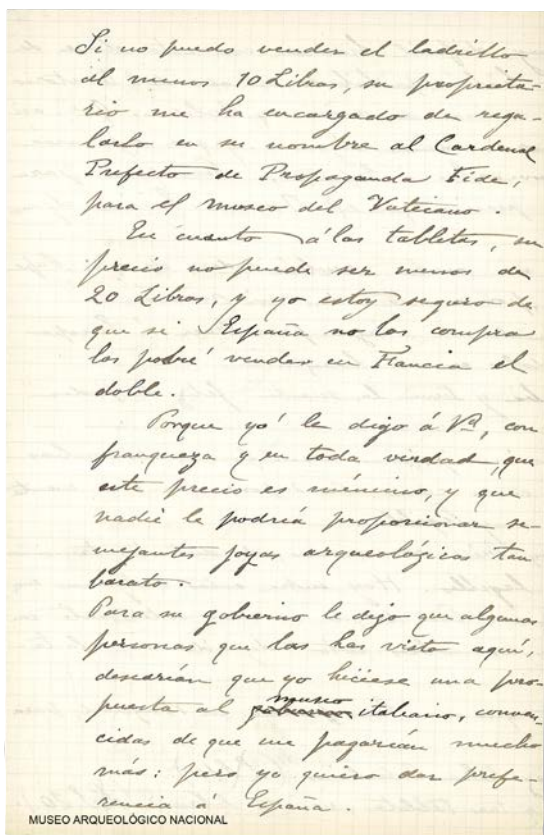 Si no puedo vender el ladrillo
al menos 10 Libras, su propieta-
rio me ha encargado de rega-
larlo en su nombre al Cardenal
Prefecto de Propaganda Fide,
para el museo del Vaticano.
En cuanto á las tabletas, su
precio no puede ser menos de
20 Libras, y yo estoy seguro de
que si España no las compra
las podré vender en Francia el
doble.
Porque yó le digo á Vd, con
franqueza y en toda verdad, que
este precio es mínimo, y que
nadie le podria proporcionar se-
mejantes joyas arqueológicas tan
barato.
Para su gobierno le digo que algunas
personas que las han visto aquí,
desearían que yo hiciese una pro-
puesta al museo italiano, conven-
cidas de que me pagarían mucho
más: pero yo quiero dar prefe-
rencia á España.
MUSEO ARQUEOLÓGICO NACIONAL